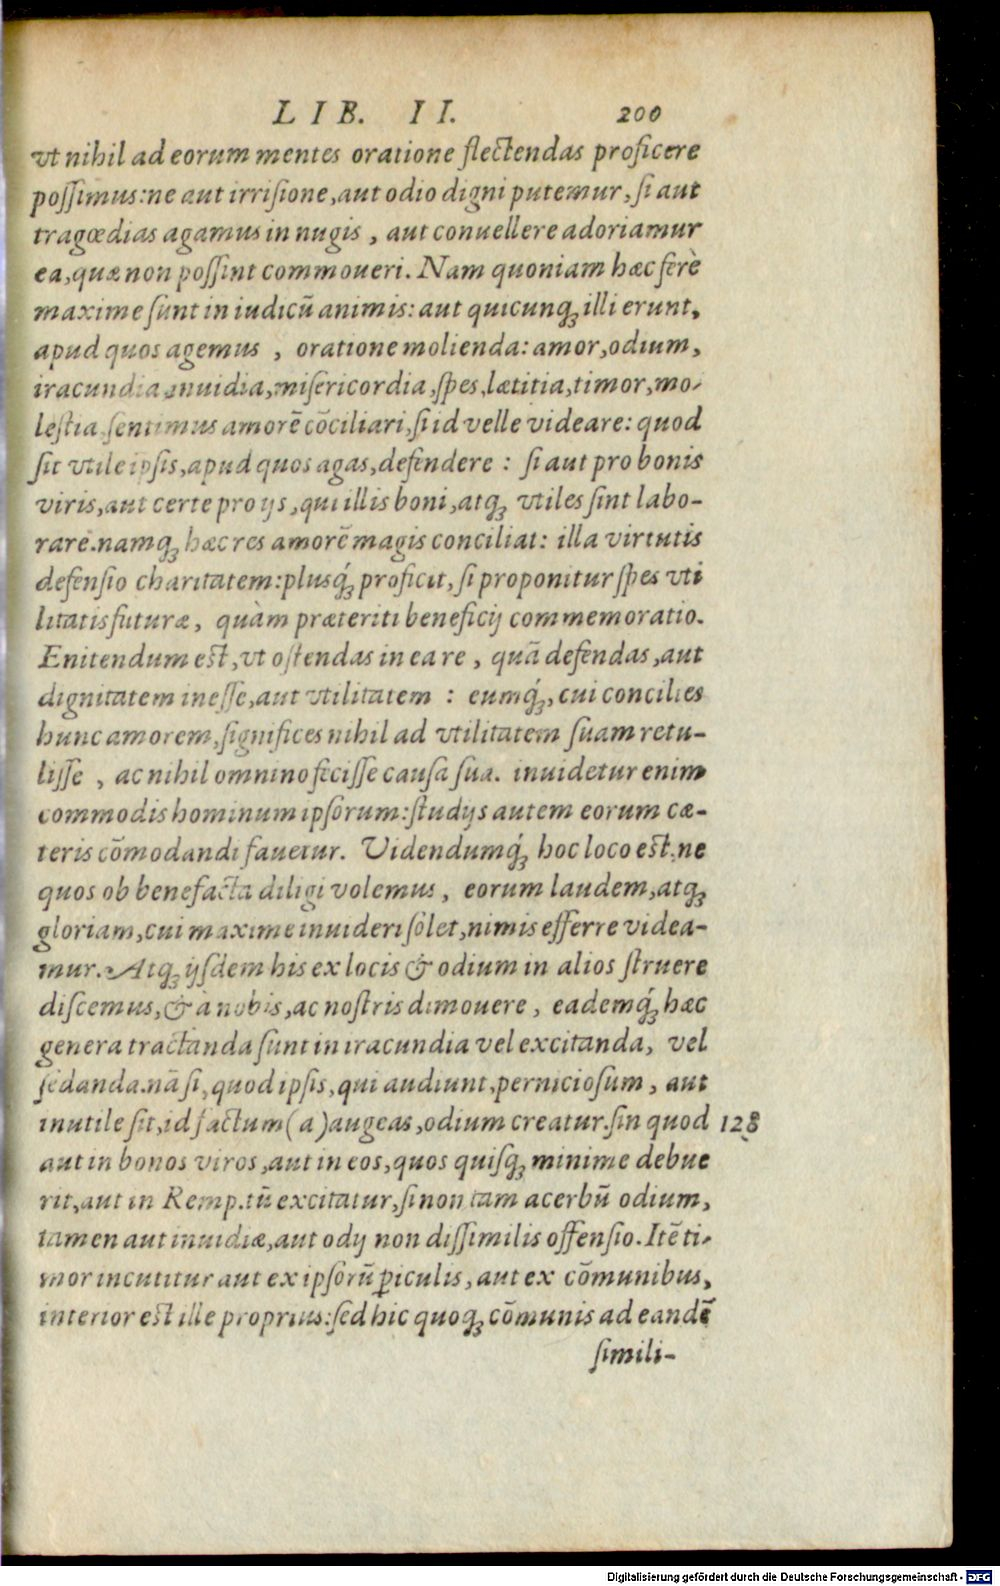 LIB. II. 200
vt nihil ad eorum mentes oratione flectendas proficere
poſſimus: ne aut irriſione, aut odio digni putemur, ſi aut
tragœdias agamus in nugis, aut conuellere adoriamur
ea, quæ non poſſint commoueri. Nam quoniam hæc ferè
maxime ſunt in iudicũ animis: aut quicunqꝫ illi erunt,
apud quos agemus, oratione molienda: amor, odium,
iracundia, inuidia, miſericordia, ſpes, lætitia, timor, mo-
leſtia ſentimus amorẽ cõciliari, ſi id velle videare: quod
ſit vtile ipſis, apud quos agas, defendere: ſi aut pro bonis
viris, aut certe pro ijs, qui illis boni, atqꝫ vtiles ſint labo-
rare. namqꝫ hæc res amorẽ magis conciliat: illa virtutis
defenſio charitatem: plusq́ꝫ proficit, ſi proponitur ſpes vti
litatis futuræ, quàm præteriti beneficij commemoratio.
Enitendum eſt, vt oſtendas in ea re, quã defendas, aut
dignitatem ineſſe, aut vtilitatem: eumq́ꝫ, cui concilies
hunc amorem, ſignifices nihil ad vtilitatem ſuam retu-
liſſe, ac nihil omnino feciſſe cauſa ſua. inuidetur enim
commodis hominum ipſorum: ſtudijs autem eorum cæ-
teris cõmodandi fauetur. Videndumq́ꝫ hoc loco eſt, ne
quos ob benefacta diligi volemus, eorum laudem, atqꝫ
gloriam, cui maxime inuideri ſolet, nimis efferre videa-
mur. Atqꝫ ijſdem his ex locis & odium in alios ſtruere
diſcemus, & à nobis, ac noſtris dimouere, eademq́ꝫ hæc
genera tractanda ſunt in iracundia vel excitanda, vel
ſedanda. nã ſi, quod ipſis, qui audiunt, pernicioſum, aut
inutile ſit, id factum (a) augeas, odium creatur. ſin quod 128
aut in bonos viros, aut in eos, quos quiſqꝫ minime debue
rit, aut in Remp. tũ excitatur, ſi non tam acerbũ odium,
tamen aut inuidiæ, aut odij non diſſimilis offenſio. Itẽ ti-
mor incutitur aut ex ipſorũ ꝑiculis, aut ex cõmunibus,
interior eſt ille proprius: ſed hic quoqꝫ cõmunis ad eandẽ
ſimili-
Digitalisierung gefördert durch die Deutsche Forschungsgemeinschaft - DFG